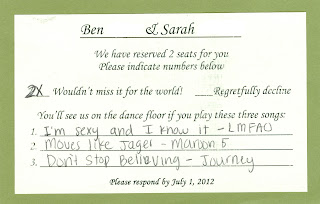 Ben & Sarah
We have reserved 2 seats for you
Please indicate numbers below
2X Wouldn't miss it for the world! Regretfully decline
You'll see us on the dance floor if you play these three songs:
1. I'm sexy and I know it - LMFAO
2. Moves like Jager - Maroon 5
3. Don't Stop Believing - Journey
Please respond by July 1, 2012